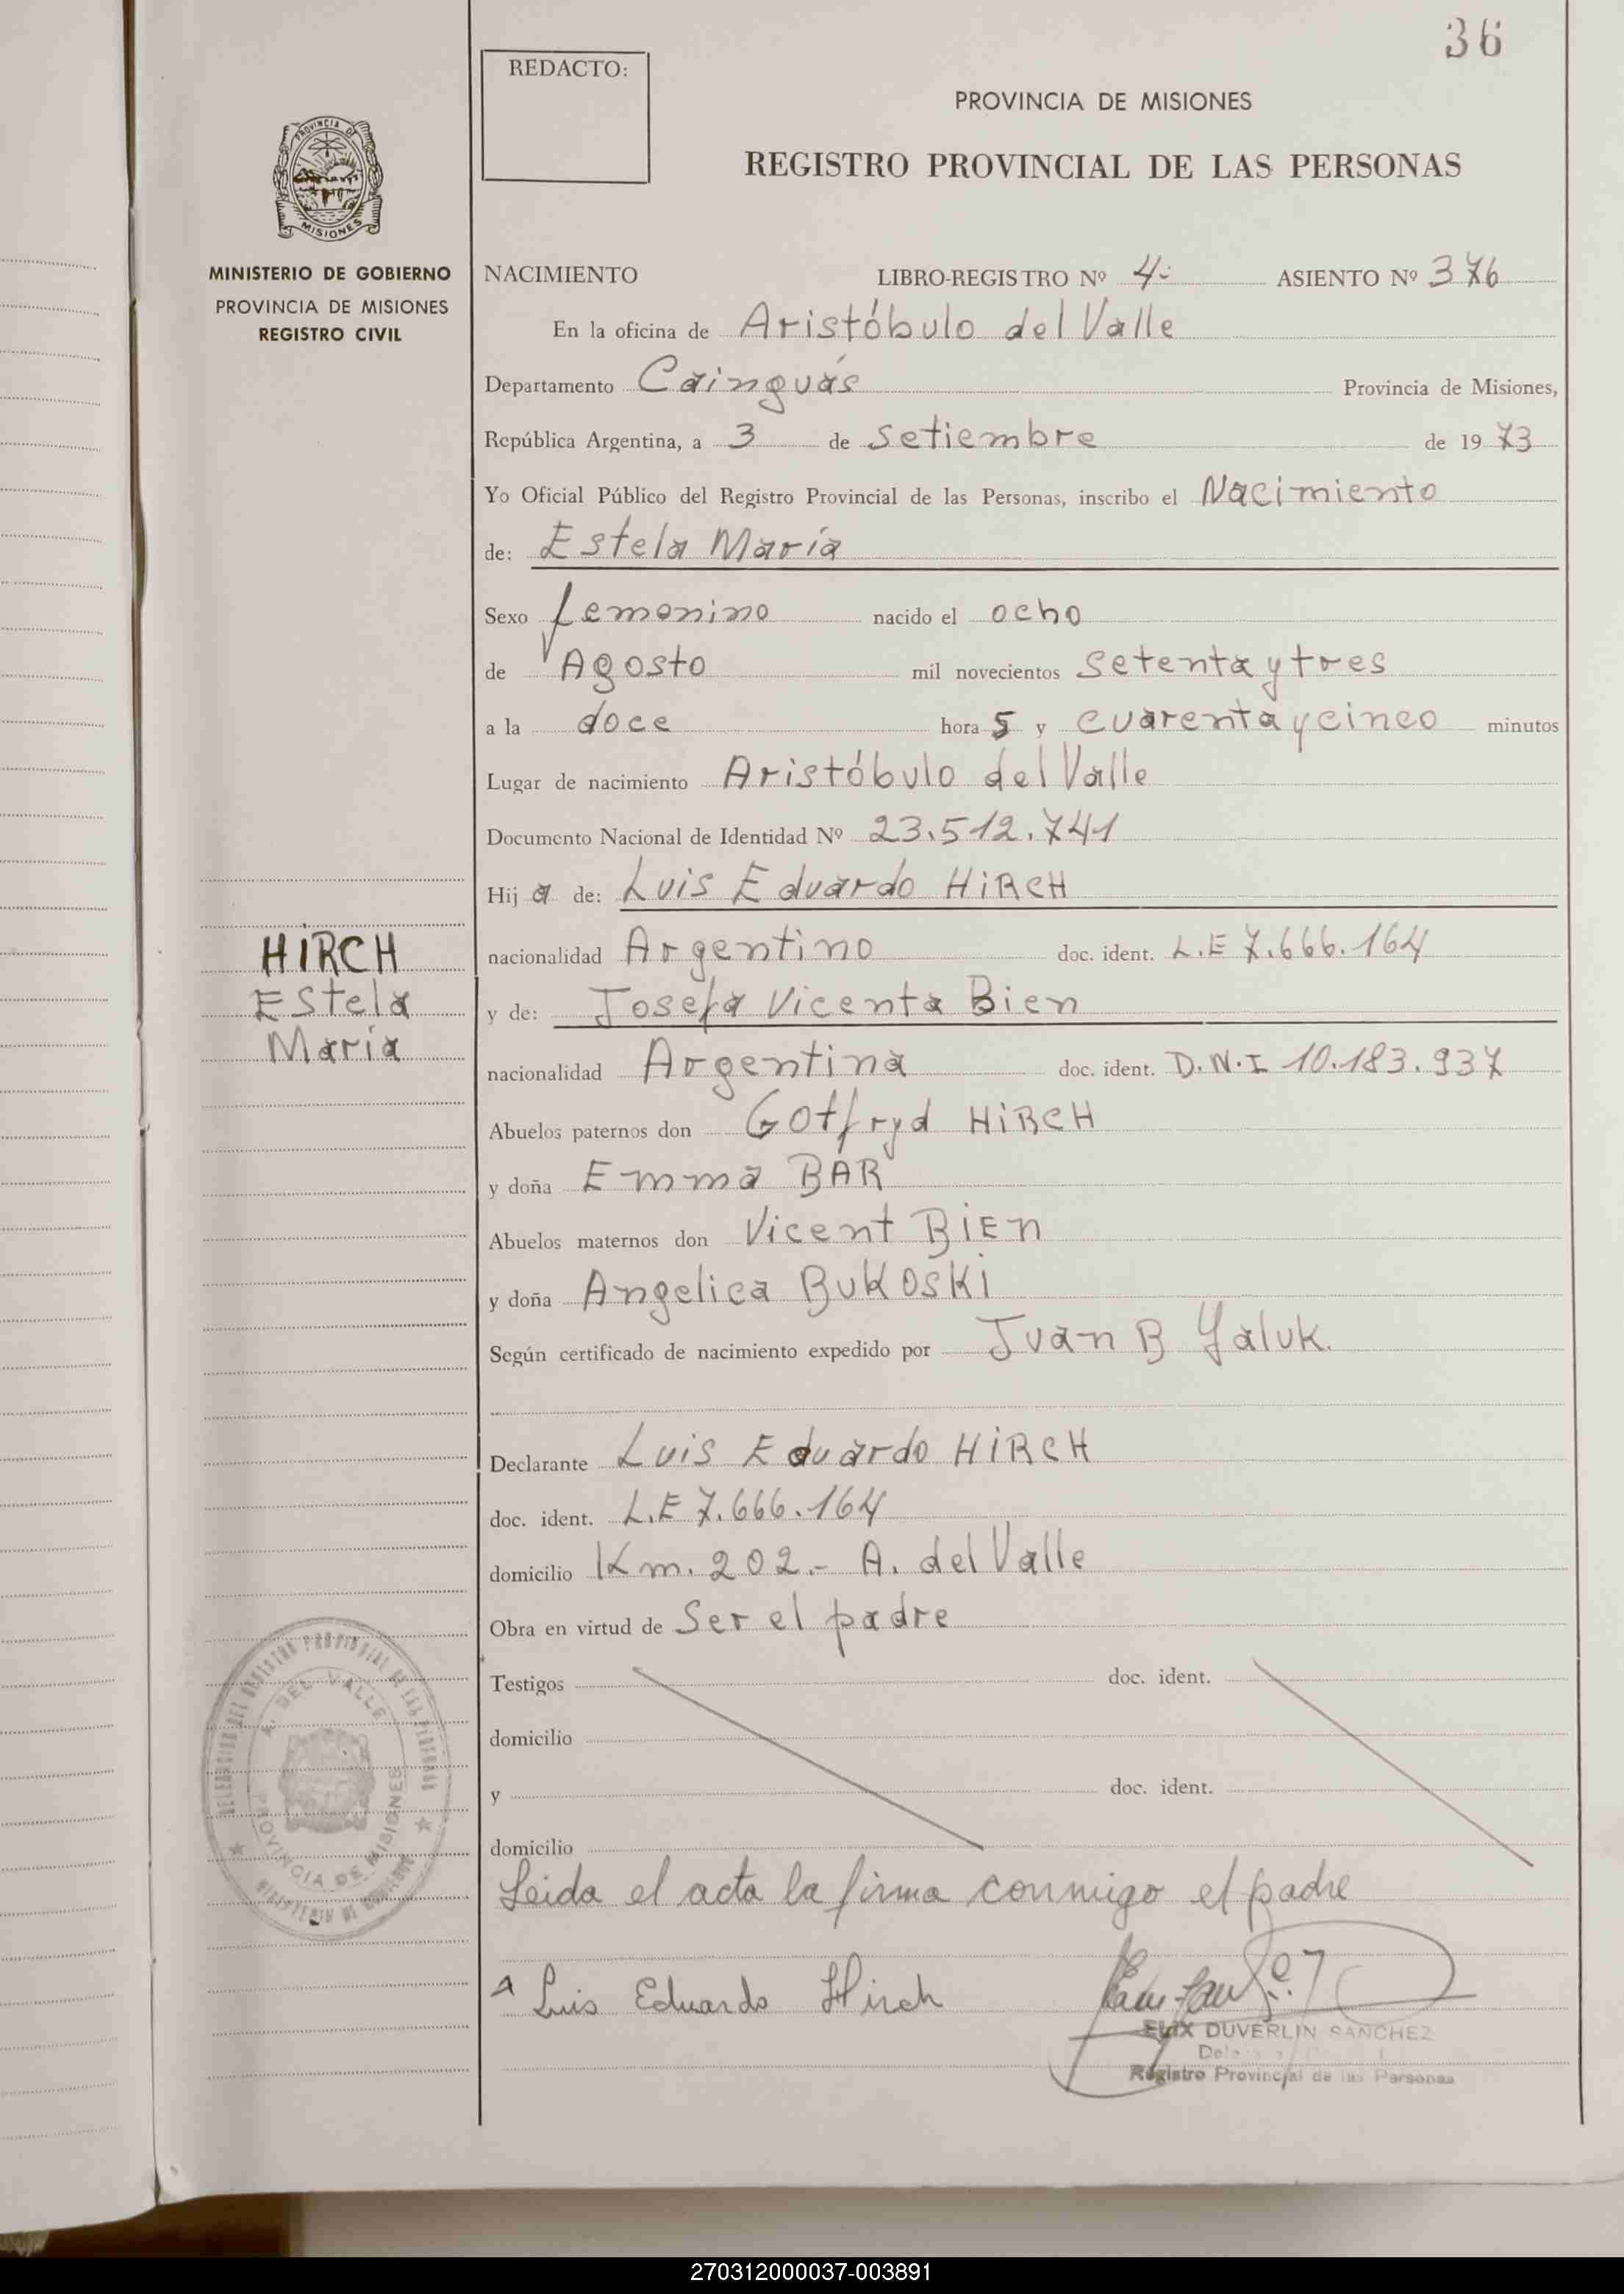 36
REDACTO:
PROVINCIA DE MISIONES
REGISTRO PROVINCIAL DE LAS PERSONAS
PROVINCIA DE
MISIONES
MINISTERIO DE GOBIERNO
PROVINCIA DE MISIONES
REGISTRO CIVIL
NACIMIENTO LIBRO-REGISTRO Nº 4- ASIENTO Nº 376
En la oficina de Aristóbulo del Valle
Departamento Cainguás Provincia de Misiones,
República Argentina, a 3 de setiembre de 1973
Yo Oficial Público del Registro Provincial de las Personas, inscribo el Nacimiento
de: Estela María
Sexo femenino nacido el ocho
de Agosto mil novecientos setenta y tres
a la doce hora s y cuarenta y cinco minutos
Lugar de nacimiento Aristóbulo del Valle
Documento Nacional de Identidad Nº 23.512.741
Hij a de: Luis Eduardo HiRCH
nacionalidad Argentino doc. ident. L.E 7.666.164
y de: Josefa Vicenta Bien
nacionalidad Argentina doc. ident. D.N.I 10.183.937
Abuelos paternos don Gotfryd HiRCH
y doña Emma BAR
Abuelos maternos don Vicent BiEn
y doña Angelica BUKOSKi
Según certificado de nacimiento expedido por Juan B Yaluk.
Declarante Luis Eduardo HiRCH
doc. ident. L.E 7.666.164
domicilio Km. 202.- A. del Valle
Obra en virtud de Ser el padre
Testigos doc. ident.
domicilio
y doc. ident.
domicilio
Leida el acta la firma conmigo el padre
Luis Eduardo Hirch
HiRCH
Estela
María
DELEGACION DEL REGISTRO PROVINCIAL DE LAS PERSONAS
A. DEL VALLE
PROVINCIA DE MISIONES
MINISTERIO DE GOBIERNO
DUVERLIN SANCHEZ
Registro Provincial de las Personas
270312000037-003891